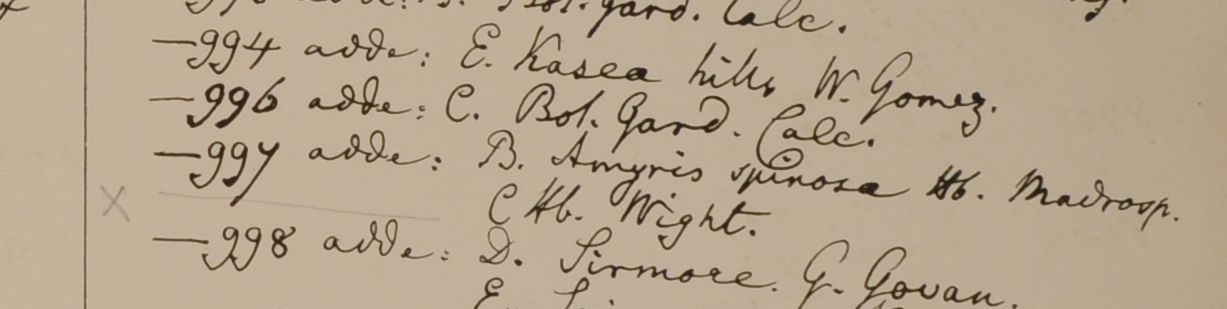 Bot. Gard. Calc.
—994 adde: E. Kasea hills W. Gomez.
—996 adde: C. Bot. Gard. Calc.
—997 adde: B. Amyris spinosa Hb. Madrasp.
C Hb. Wight.
—998 adde: D. Sirmore. G. Govan.
E.